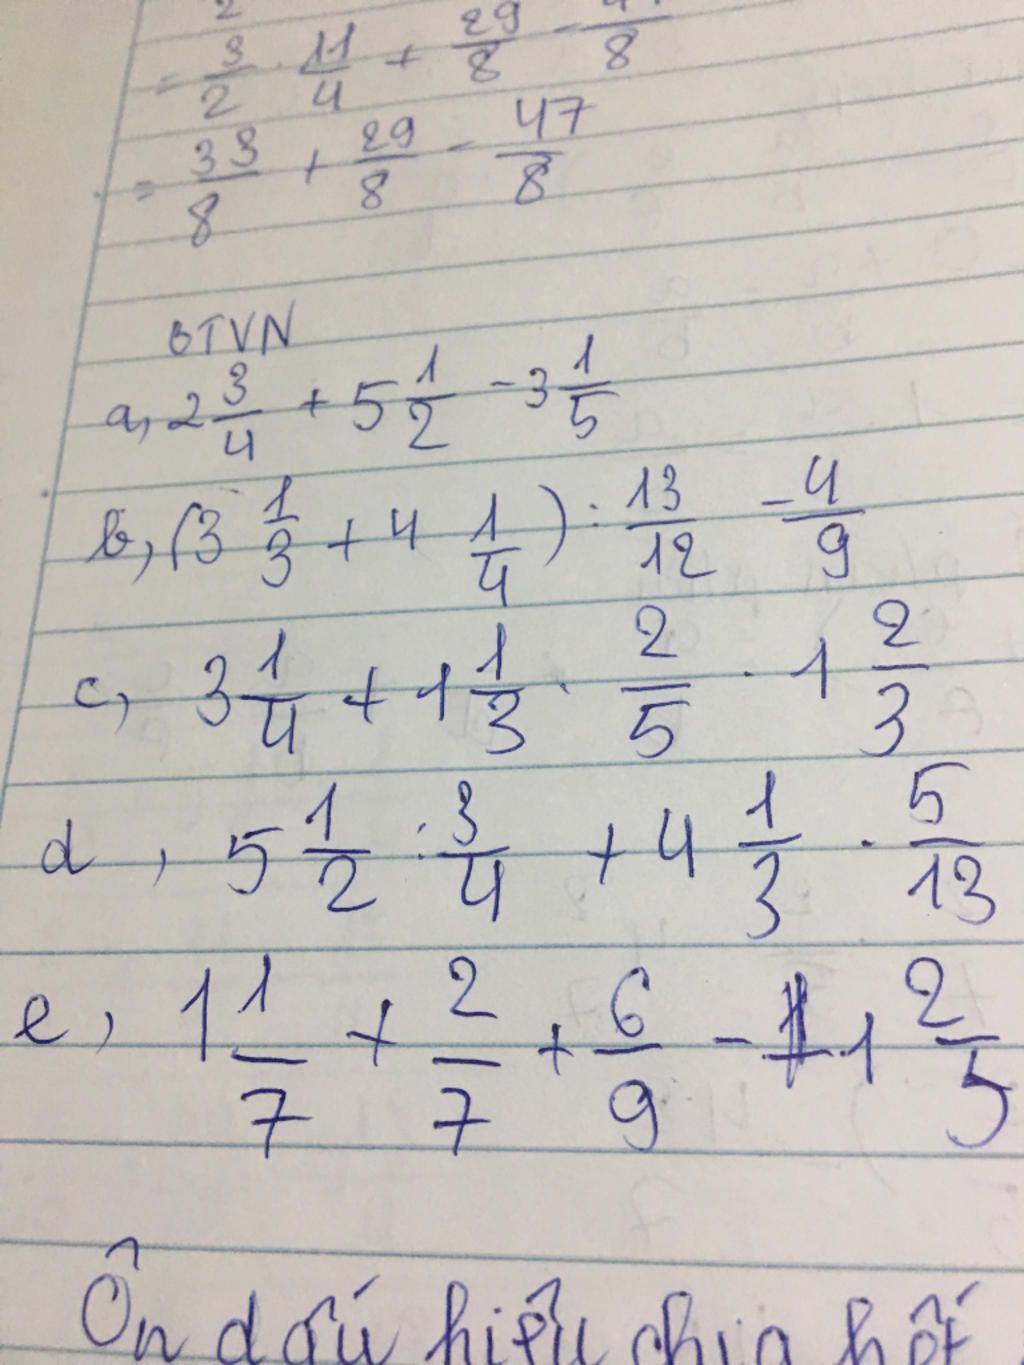 = 3/2 . 11/4 + 29/8 - 47/8
= 33/8 + 29/8 - 47/8
BTVN
a, 2 3/4 + 5 1/2 - 3 1/5
b, (3 1/3 + 4 1/4) : 13/12 - 4/9
c, 3 1/4 + 1 1/3 . 2/5 . 1 2/3
d, 5 1/2 : 3/4 + 4 1/3 . 5/13
e, 1 1/7 + 2/7 + 6/9 - 1 2/5
Ôn dấu hiệu chia hết